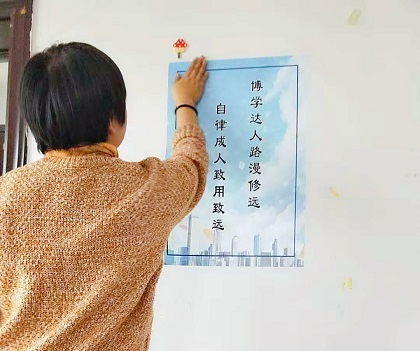 博学达人路漫修远
自律成人致用致远